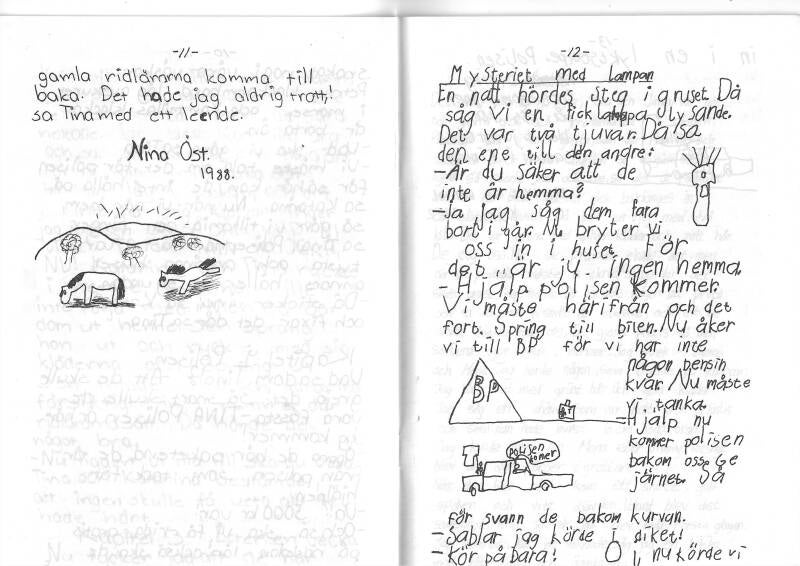 -11-
gamla ridlärarinna komma till
baka. Det hade jag aldrig trott!
sa Tina med ett leende.
Nina Öst.
1988.
-12-
Mysteriet med lampan
En natt hördes steg i gruset. Då
såg vi en ficklampa lysande.
Det var två tjuvar. Då sa
den ene till den andre:
-Är du säker att de
inte är hemma?
-Ja jag såg dem fara
bort i går. Nu bryter vi
oss in i huset. För
det är ju ingen hemma.
-Hjälp polisen kommer.
Vi måste härifrån och det
fort. Spring till bilen. Nu åker
vi till BP för vi har inte
någon bensin
kvar. Nu måste
vi tanka.
Hjälp nu
kommer polisen
bakom oss. Ge
järnet. Så
BP
polisen
komer
för svann de bakom kurvan.
-Sablar jag körde i diket!
-Kör på bara! Oj, nu körde vi